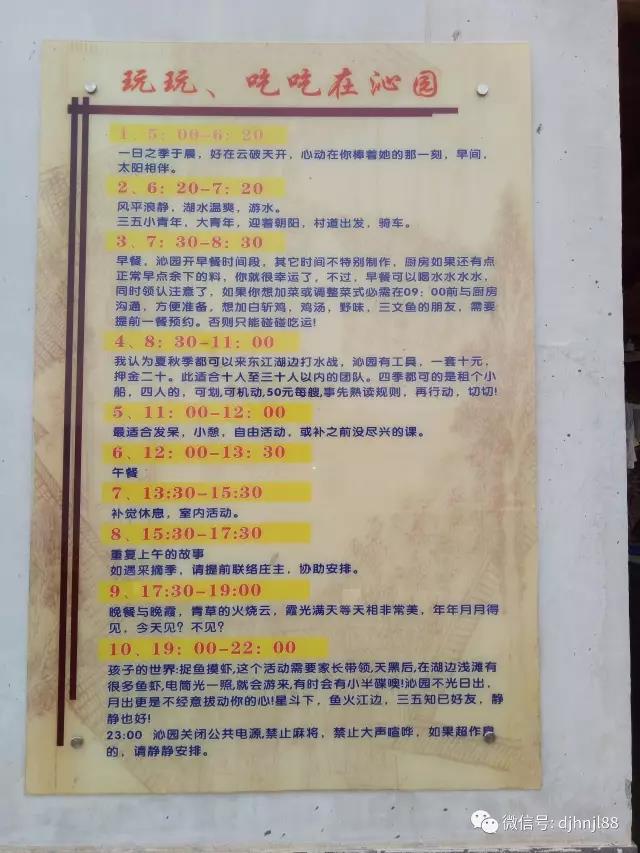 玩玩、吃吃在沁园
1、5：00-6：20
一日之季于晨，好在云破天开，心动在你捧着她的那一刻，早间，
太阳相伴。
2、6：20-7：20
风平浪静，湖水温爽，游水。
三五小青年，大青年，迎着朝阳，村道出发，骑车。
3、7：30-8：30
早餐，沁园开早餐时间段，其它时间不特别制作，厨房如果还有点
正常早点余下的料，你就很幸运了，不过，早餐可以喝水水水水，
同时领认注意了，如果你想加菜或调整菜式必需在09：00前与厨房
沟通，方便准备，想加白斩鸡，鸡汤，野味，三文鱼的朋友，需要
提前一餐预约。否则只能碰碰吃运！
4、8：30-11：00
我认为夏秋季都可以来东江湖边打水战，沁园有工具，一套十元，
押金二十。此适合十人至三十人以内的团队。四季都可的是租个小
船，四人的，可划,可机动,50元每艘,事先熟读规则，再行动，切切!
5、11：00-12：00
最适合发呆，小憩，自由活动，或补之前没尽兴的课。
6、12：00-13：30
午餐
7、13:30-15:30
补觉休息，室内活动。
8、15:30-17:30
重复上午的故事
如遇采摘季，请提前联络庄主，协助安排。
9、17:30-19:00
晚餐与晚霞，青草的火烧云，霞光满天等天相非常美，年年月月得
见，今天见？不见？
10、19：00-22：00
孩子的世界:捉鱼摸虾,这个活动需要家长带领,天黑后,在湖边浅滩有
很多鱼虾,电筒光一照,就会游来,有时会有小半碟噢!沁园不光日出，
月出更是不经意拔动你的心!星斗下，鱼火江边，三五知已好友，静
静也好!
23:00 沁园关闭公共电源,禁止麻将，禁止大声喧哗，如果超作息
的，请静静安排。
微信号: djhnjl88